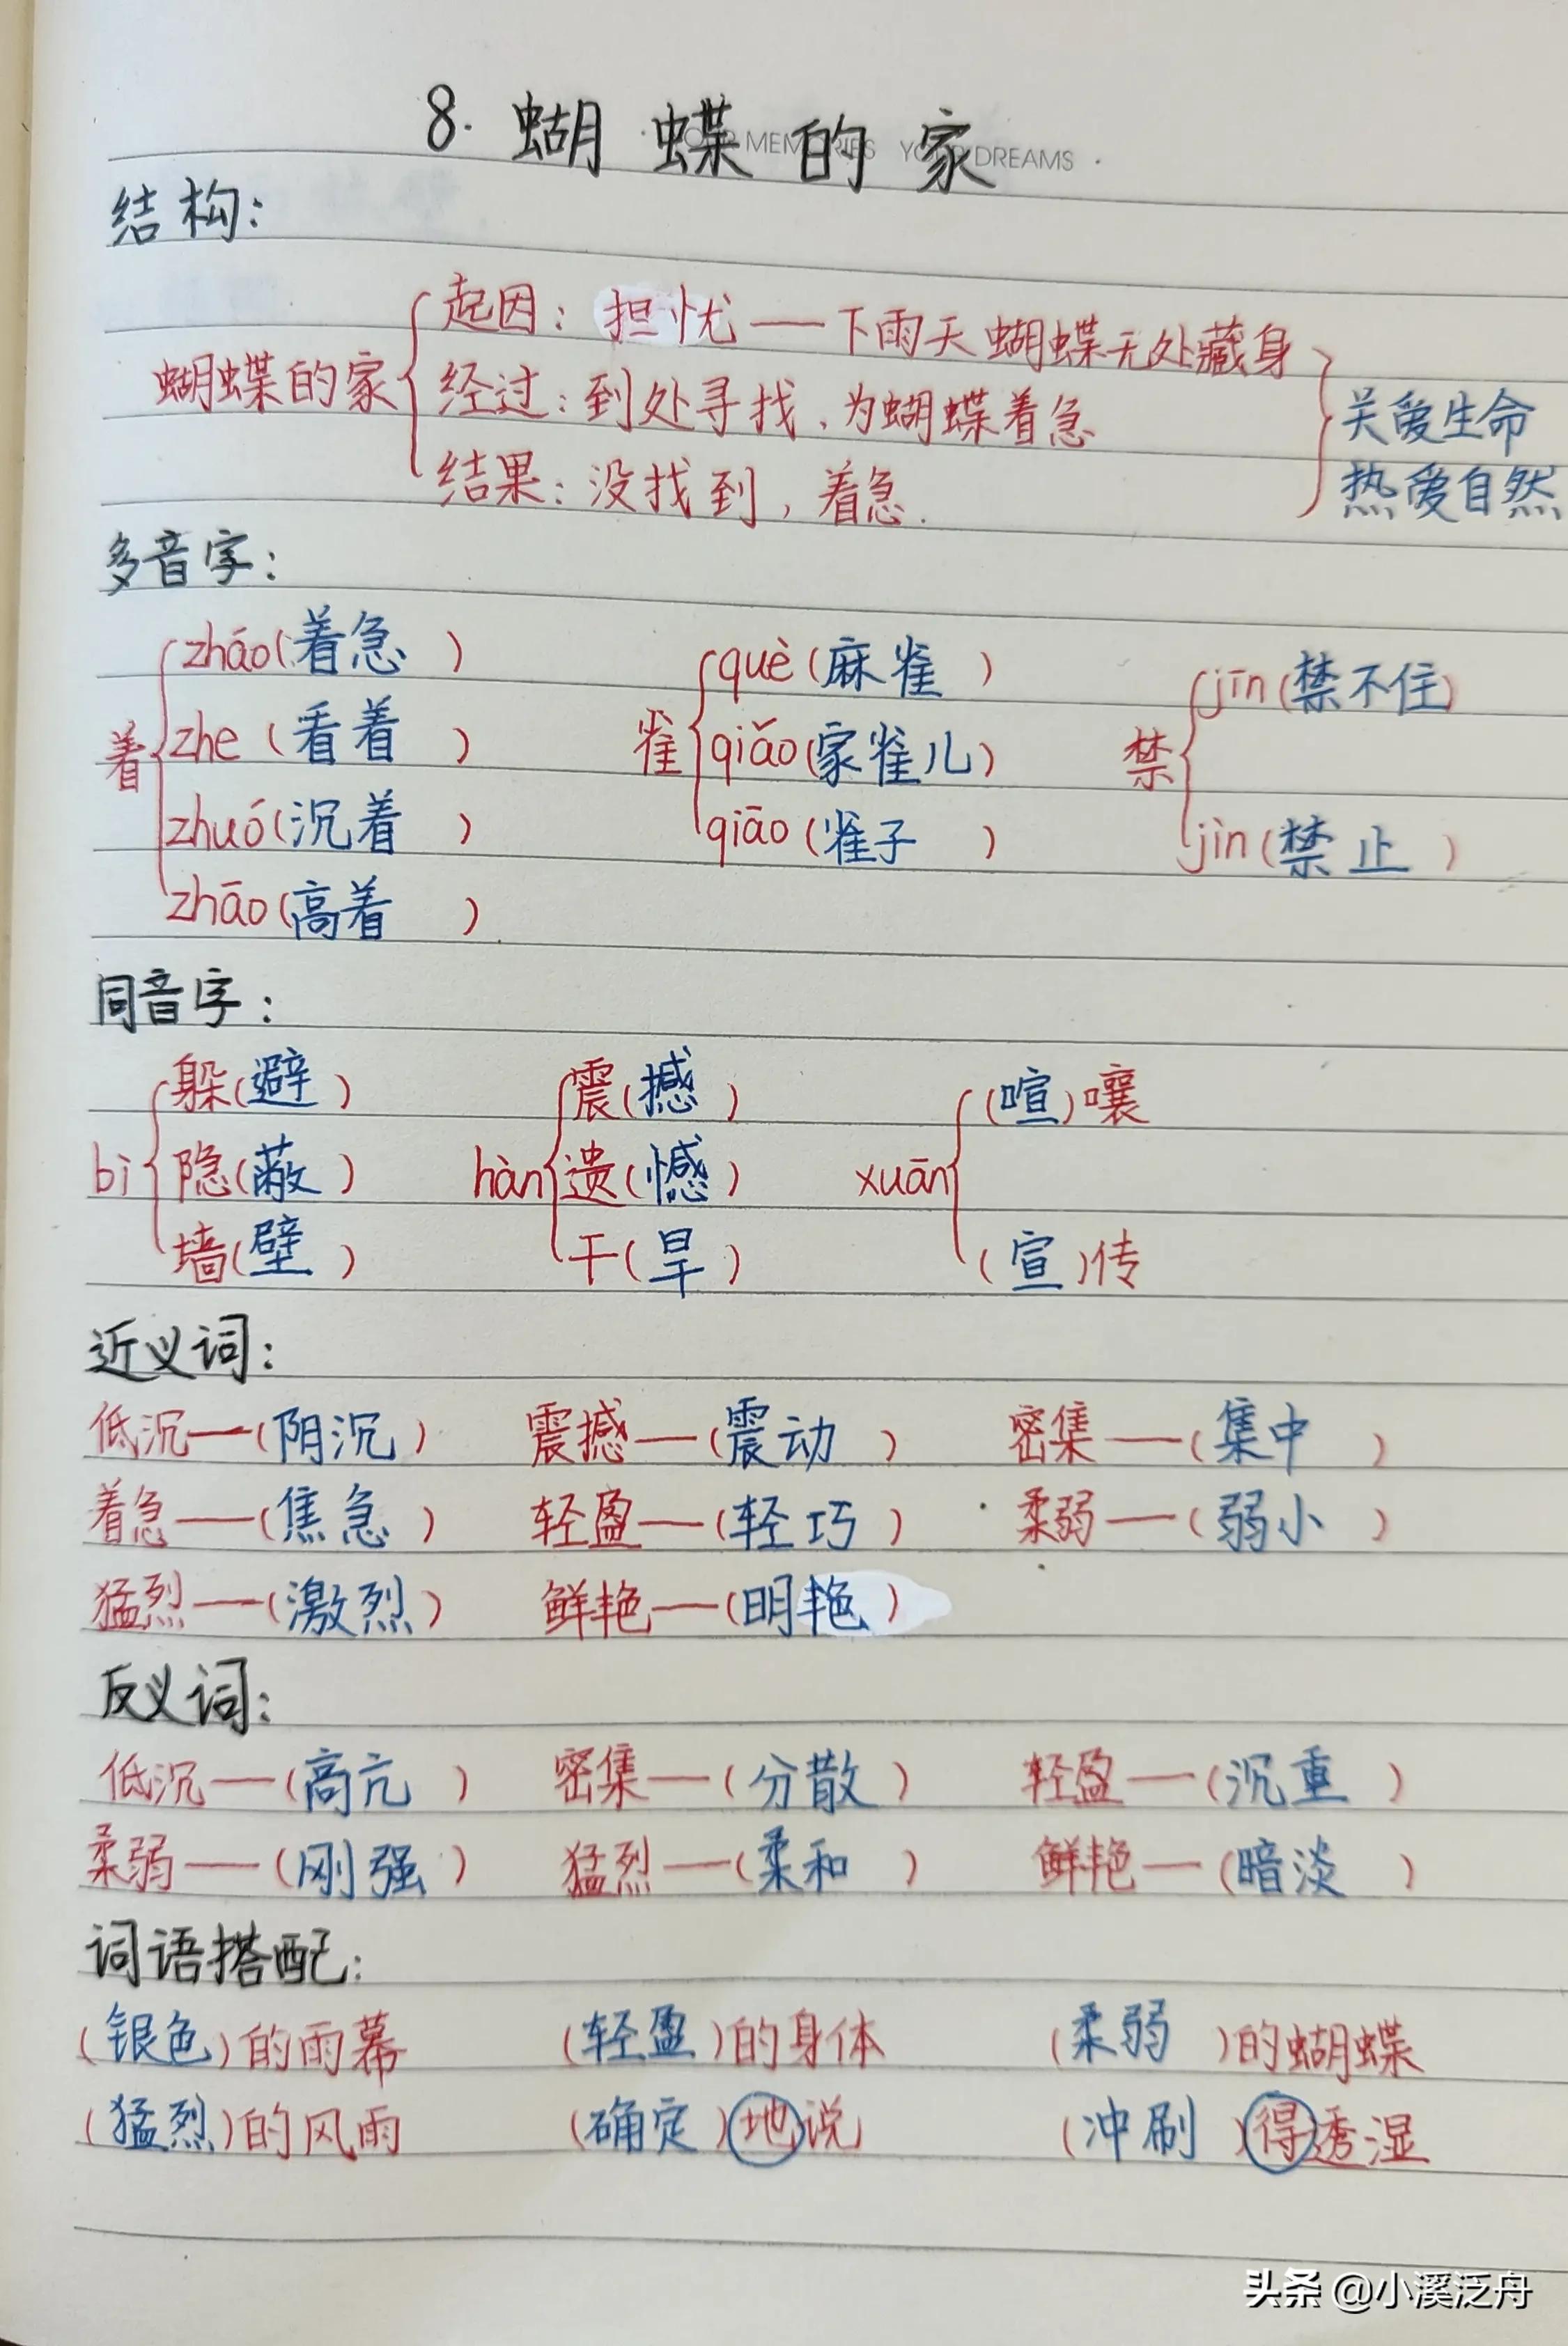 8. 蝴蝶的家
MEM RIES YO R DREAMS
结构:
起因: 担忧——下雨天蝴蝶无处藏身
蝴蝶的家
经过: 到处寻找、为蝴蝶着急
关爱生命
结果: 没找到, 着急.
热爱自然
多音字:
zháo(着急 ) què(麻雀 ) jīn(禁不住)
着 zhe (看着 ) 雀 qiǎo(家雀儿) 禁
zhuó(沉着 ) qiāo(雀子 ) jìn(禁止 )
zhāo(高着 )
同音字:
躲(避 ) 震(撼 ) (喧)嚷
bì 隐(蔽 ) hàn 遗(憾 ) xuān
墙(壁 ) 干(旱 ) (宣)传
近义词:
低沉—(阴沉 ) 震撼—(震动 ) 密集—(集中 )
着急—(焦急 ) 轻盈—(轻巧 ) 柔弱—(弱小 )
猛烈—(激烈 ) 鲜艳—(明艳 )
反义词:
低沉—(高亢 ) 密集—(分散 ) 轻盈—(沉重 )
柔弱—(刚强 ) 猛烈—(柔和 ) 鲜艳—(暗淡 )
词语搭配:
(银色)的雨幕 (轻盈)的身体 (柔弱 )的蝴蝶
(猛烈)的风雨 (确定)地说 (冲刷 )得透湿
头条 @小溪泛舟